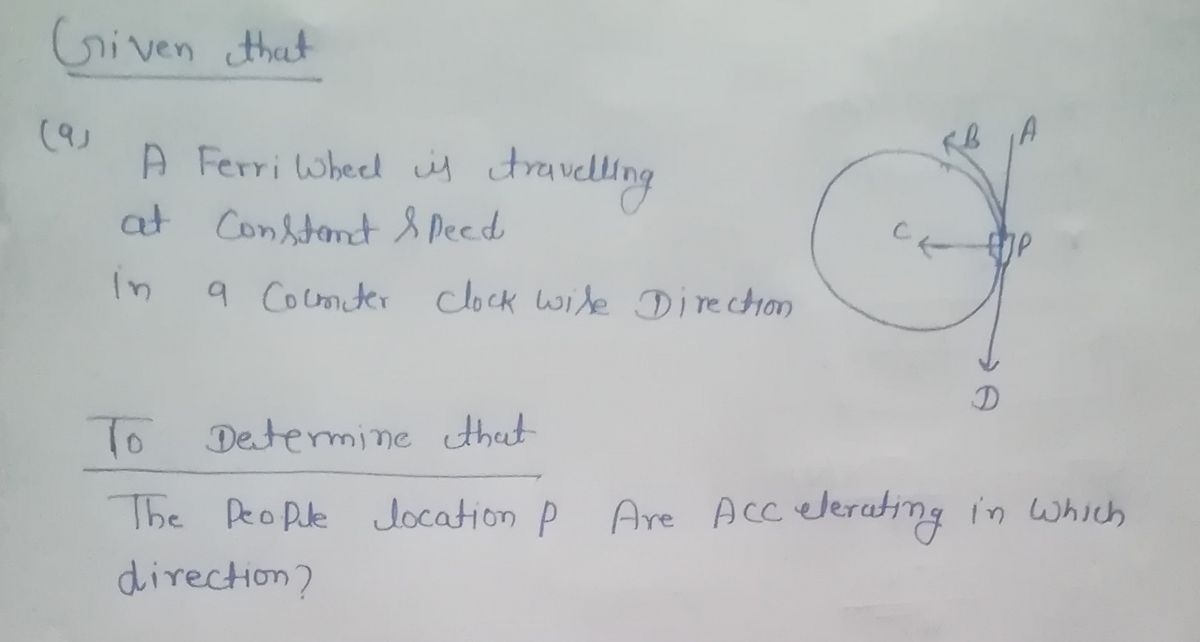 Given that
(a)
A Ferri Wheel is travelling
at Constant Speed
in a Counter Clock wise Direction
B
A
C
P
D
To Determine that
The People location P Are Accelerating in which
direction?